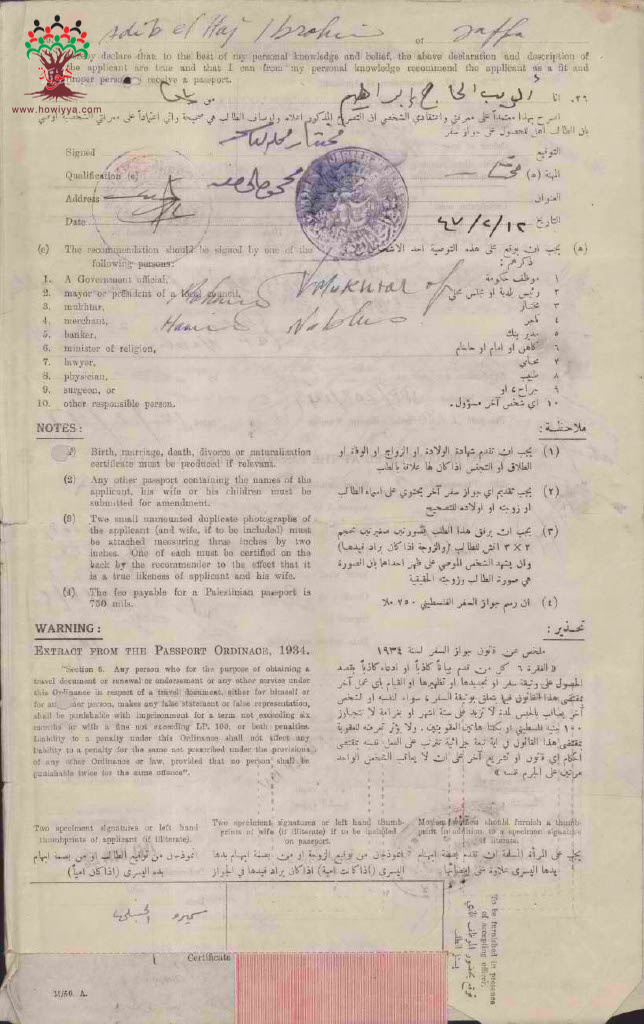 Adib el Haj Ibrahim of Jaffa
declare that to the best of my personal knowledge and belief, the above declaration and description of
the applicant are true and that I can from my personal knowledge recommend the applicant as a fit and
proper person to receive a passport.
www.howiyya.com
٢٦. انا أديب الحاج إبراهيم من
اصرح بهذا معتمداً على معرفتي واعتقادي الشخصي ان التصريح المذكور اعلاه واوصاف الطالب هي صحيحة واني اعتماداً على معرفتي الشخصية اوصي
بان الطالب اهل للحصول على جواز سفر
Signed
التوقيع
Qualification (c)
المهنة (ه) مختار
Address
العنوان
Date
التاريخ ٤٧/٢/١٢
(c) The recommendation should be signed by one of the
following persons:
1. A Government official,
2. mayor or president of a local council,
3. mukhtar,
4. merchant,
5. banker,
6. minister of religion,
7. lawyer,
8. physician,
9. surgeon, or
10. other responsible person.
(ه) يجب ان يوقع على هذه التوصية احد الاشخاص
ذكرهم:
١ موظف حكومة
٢ رئيس بلدية او مجلس محلي
٣ مختار
٤ تاجر
٥ مدير بنك
٦ كاهن او امام او حاخام
٧ محامي
٨ طبيب
٩ جراح، او
١٠ اي شخص آخر مسؤول.
Mukhtar of
NOTES:
(1) Birth, marriage, death, divorce or naturalization
certificate must be produced if relevant.
(2) Any other passport containing the names of the
applicant, his wife or his children must be
submitted for amendment.
(3) Two small unmounted duplicate photographs of
the applicant (and wife, if to be included) must
be attached measuring three inches by two
inches. One of each must be certified on the
back by the recommender to the effect that it
is a true likeness of applicant and his wife.
(4) The fee payable for a Palestinian passport is
750 mils.
ملاحظة:
(١) يجب ان تقدم شهادة الولادة او الزواج او الوفاة او
الطلاق او التجنس اذا كان لها علاقة بالطلب
(٢) يجب تقديم اي جواز سفر آخر يحتوي على اسماء الطالب
او زوجته او اولاده للتصحيح
(٣) يجب ان يرفق هذا الطلب بصورتين صغيرتين حجم
٢ × ٣ انش للطالب (والزوجة اذا كان يراد قيدها)
وان يشهد الشخص الموصي على ظهر احداها بان الصورة
هي صورة الطالب وزوجته الحقيقية
(٤) ان رسم جواز السفر الفلسطيني ٧٥٠ ملا
WARNING:
EXTRACT FROM THE PASSPORT ORDINACE, 1934.
"Section 6. Any person who for the purpose of obtaining a
travel document or renewal or endorsement or any other service under
this Ordinance in respect of a travel document, either for himself or
for another person, makes any false statement or false representation,
shall be punishable with imprisonment for a term not exceeding six
months or with a fine not exceeding LP. 100, or both penalties.
Liability to a penalty under this Ordinance shall not affect any
liability to a penalty for the same not prescribed under the provisions
of any other Ordinance or law, provided that no person shall be
punishable twice for the same offence".
تحذير:
ملخص عن قانون جواز السفر لسنة ١٩٣٤
« الفقرة ٦ كل من قدم بياناً كاذباً او ادعاء كاذباً بقصد
الحصول على وثيقة سفر او تجديدها او تظهيرها او القيام بأي عمل آخر
بمقتضى هذا القانون فيما يتعلق بوثيقة السفر، سواء لنفسه او لشخص
آخر يعاقب بالحبس لمدة لا تزيد على ستة اشهر او بغرامة لا تتجاوز
١٠٠ جنيه فلسطيني او بكلتا هاتين العقوبتين. ولا يؤثر تعرضه للعقوبة
بمقتضى هذا القانون في اية تبعة جزائية تترتب على الفعل نفسه بمقتضى
احكام اي قانون او تشريع آخر على ان لا يعاقب الشخص الواحد
مرتين على الجرم نفسه »
Two specimen signatures or left hand
thumbprints of applicant (if illiterate).
Two specimient signatures or left hand thumb-
prints of wife (if illiterate) if to be included
on passport.
Moslem women should furnish a thumb-
print in addition to a specimen signature
if literate.
نموذجان من توقيع الطالب او من بصمة ابهام
يده اليسرى (اذا كان امياً)
نموذجان من توقيع الزوجة او من بصمة ابهام يدها
اليسرى (اذا كانت امية) اذا كان يراد قيدها في الجواز
يجب على المرأة المسلمة ان تقدم بصمة ابهام
يدها اليسرى علاوة على امضائها
To be furnished in presence
of accepting officer.
Certificate